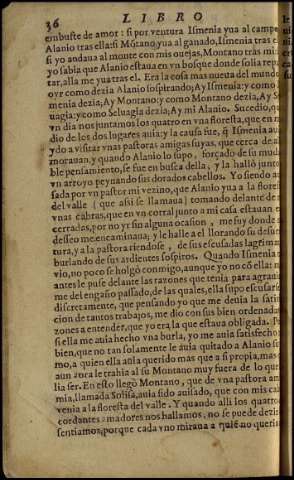 36 LIBRO
embuste de amor: si por ventura Ismenia yua al campo
Alanio tras ella: si Mōtano yua al ganado, Ismenia tras el
si yo andaua al monte con mis ouejas, Montano tras mi:
yo sabia que Alanio estaua en vn bosque donde solia repas
tar, alla me yua tras el. Era la cosa mas nueua del mundo
oyr como dezia Alanio sospirando; Ay Ismenia: y como Is
menia dezia; Ay Montano: y como Montano dezia, Ay Sel
uagia: y como Seluagia dezia; Ay mi Alanio. Sucedio, que
vn dia nos juntamos los quatro en vna floresta, que en me
dio de los dos lugares auia: y la causa fue, q̃ Ismenia auia
ydo a visitar vnas pastoras amigas suyas, que cerca de alli
morauan, y quando Alanio lo supo, forçado de su muda
ble pensamiento, se fue en busca della, y la hallò junto a
vn arroyo peynando sus dorados cabellos. Yo siendo aui
sada por vn pastor mi vezino, que Alanio yua a la floresta
del valle (que assi se llamaua) tomando delante de mi
vnas cabras, que en vn corral junto a mi casa estauan en
cerradas, por no yr sin alguna ocasion, me fuy donde mi
desseo me encaminaua; y le halle a el llorando su desuen
tura, y a la pastora riendose, de sus escusadas lagrimas
burlando de sus ardientes sospiros. Quando Ismenia me
vio, no poco se holgò conmigo, aunque yo no cõ ella: mas
antes le puse delante las razones que tenia para agrauiar
me del engaño passado, de las quales, ella supo escusarse
discretamente, que pensando yo que me deuia la satisfa
cion de tantos trabajos, me dio con sus bien ordenadas ra
zones a entender, que yo era la que estaua obligada. Porq̃
si ella me auia hecho vna burla, yo me auia satisfecho
bien, que no tan solamente le auia quitado a Alanio su pri
mo, a quien ella auia querido mas que a si propia, mas que
aun aora le trahia al su Montano muy fuera de lo que so
lia ser. En esto llegò Montano, que de vna pastora amiga
mia, llamada Solisa, auia sido auisado, que con mis cabras
venia a la floresta del valle. Y quando alli los quatro dis
cordantes amadores nos hallamos, no se puede dezir
sentiamos, porque cada vno miraua a quiē no queria